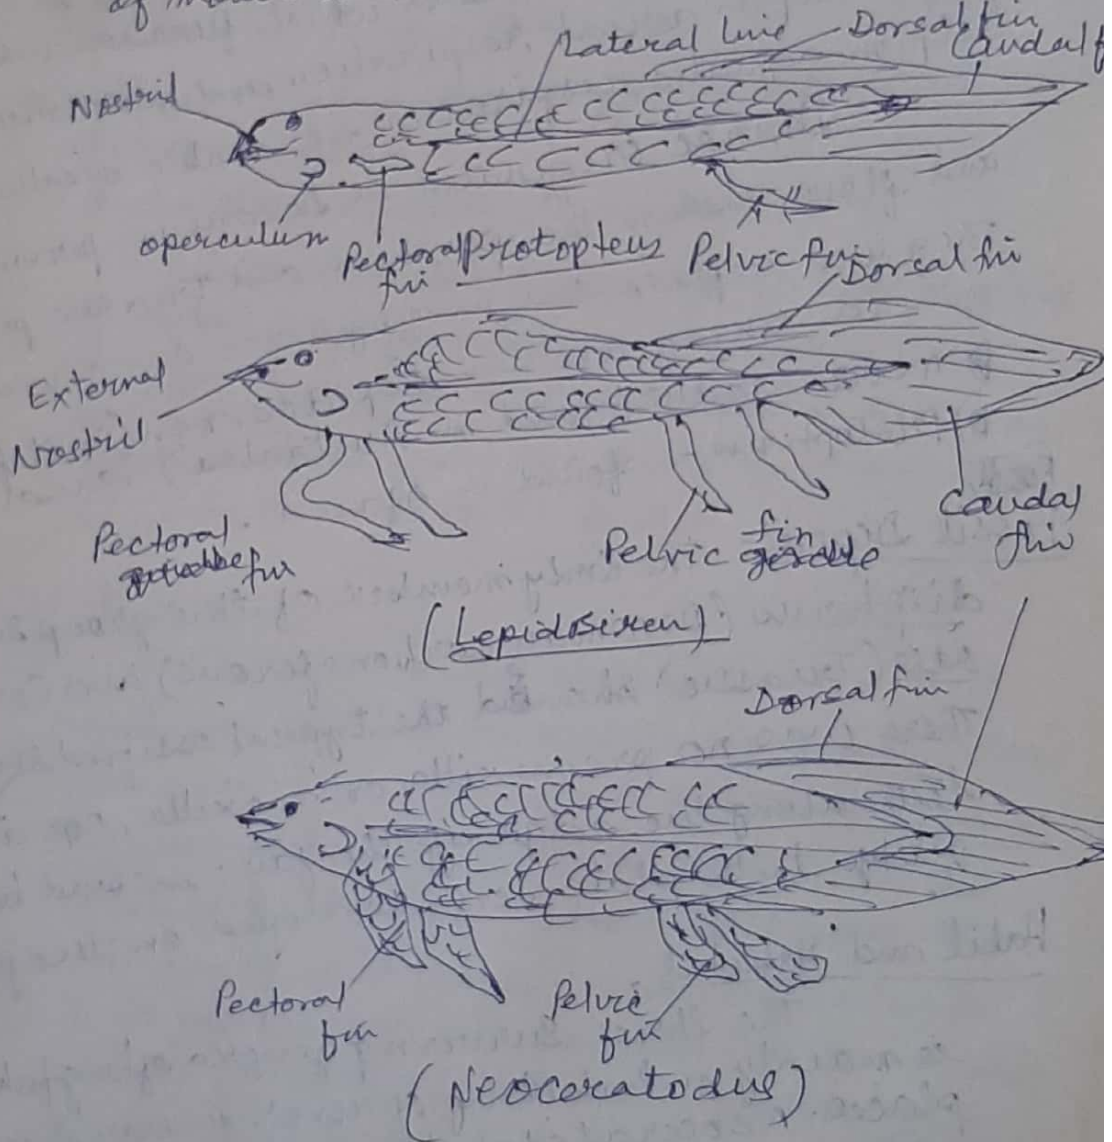 of
Lateral line
Dorsal fin
Caudal f
Nostril
operculum
Pectoral fin
Protopteus
Pelvic fin
Dorsal fin
External
Nostril
Pectoral
fin
Pelvic fin
Caudal
fin
(Lepidosiren)
Dorsal fin
Pectoral
fin
Pelvic
fin
(Neoceratodus)